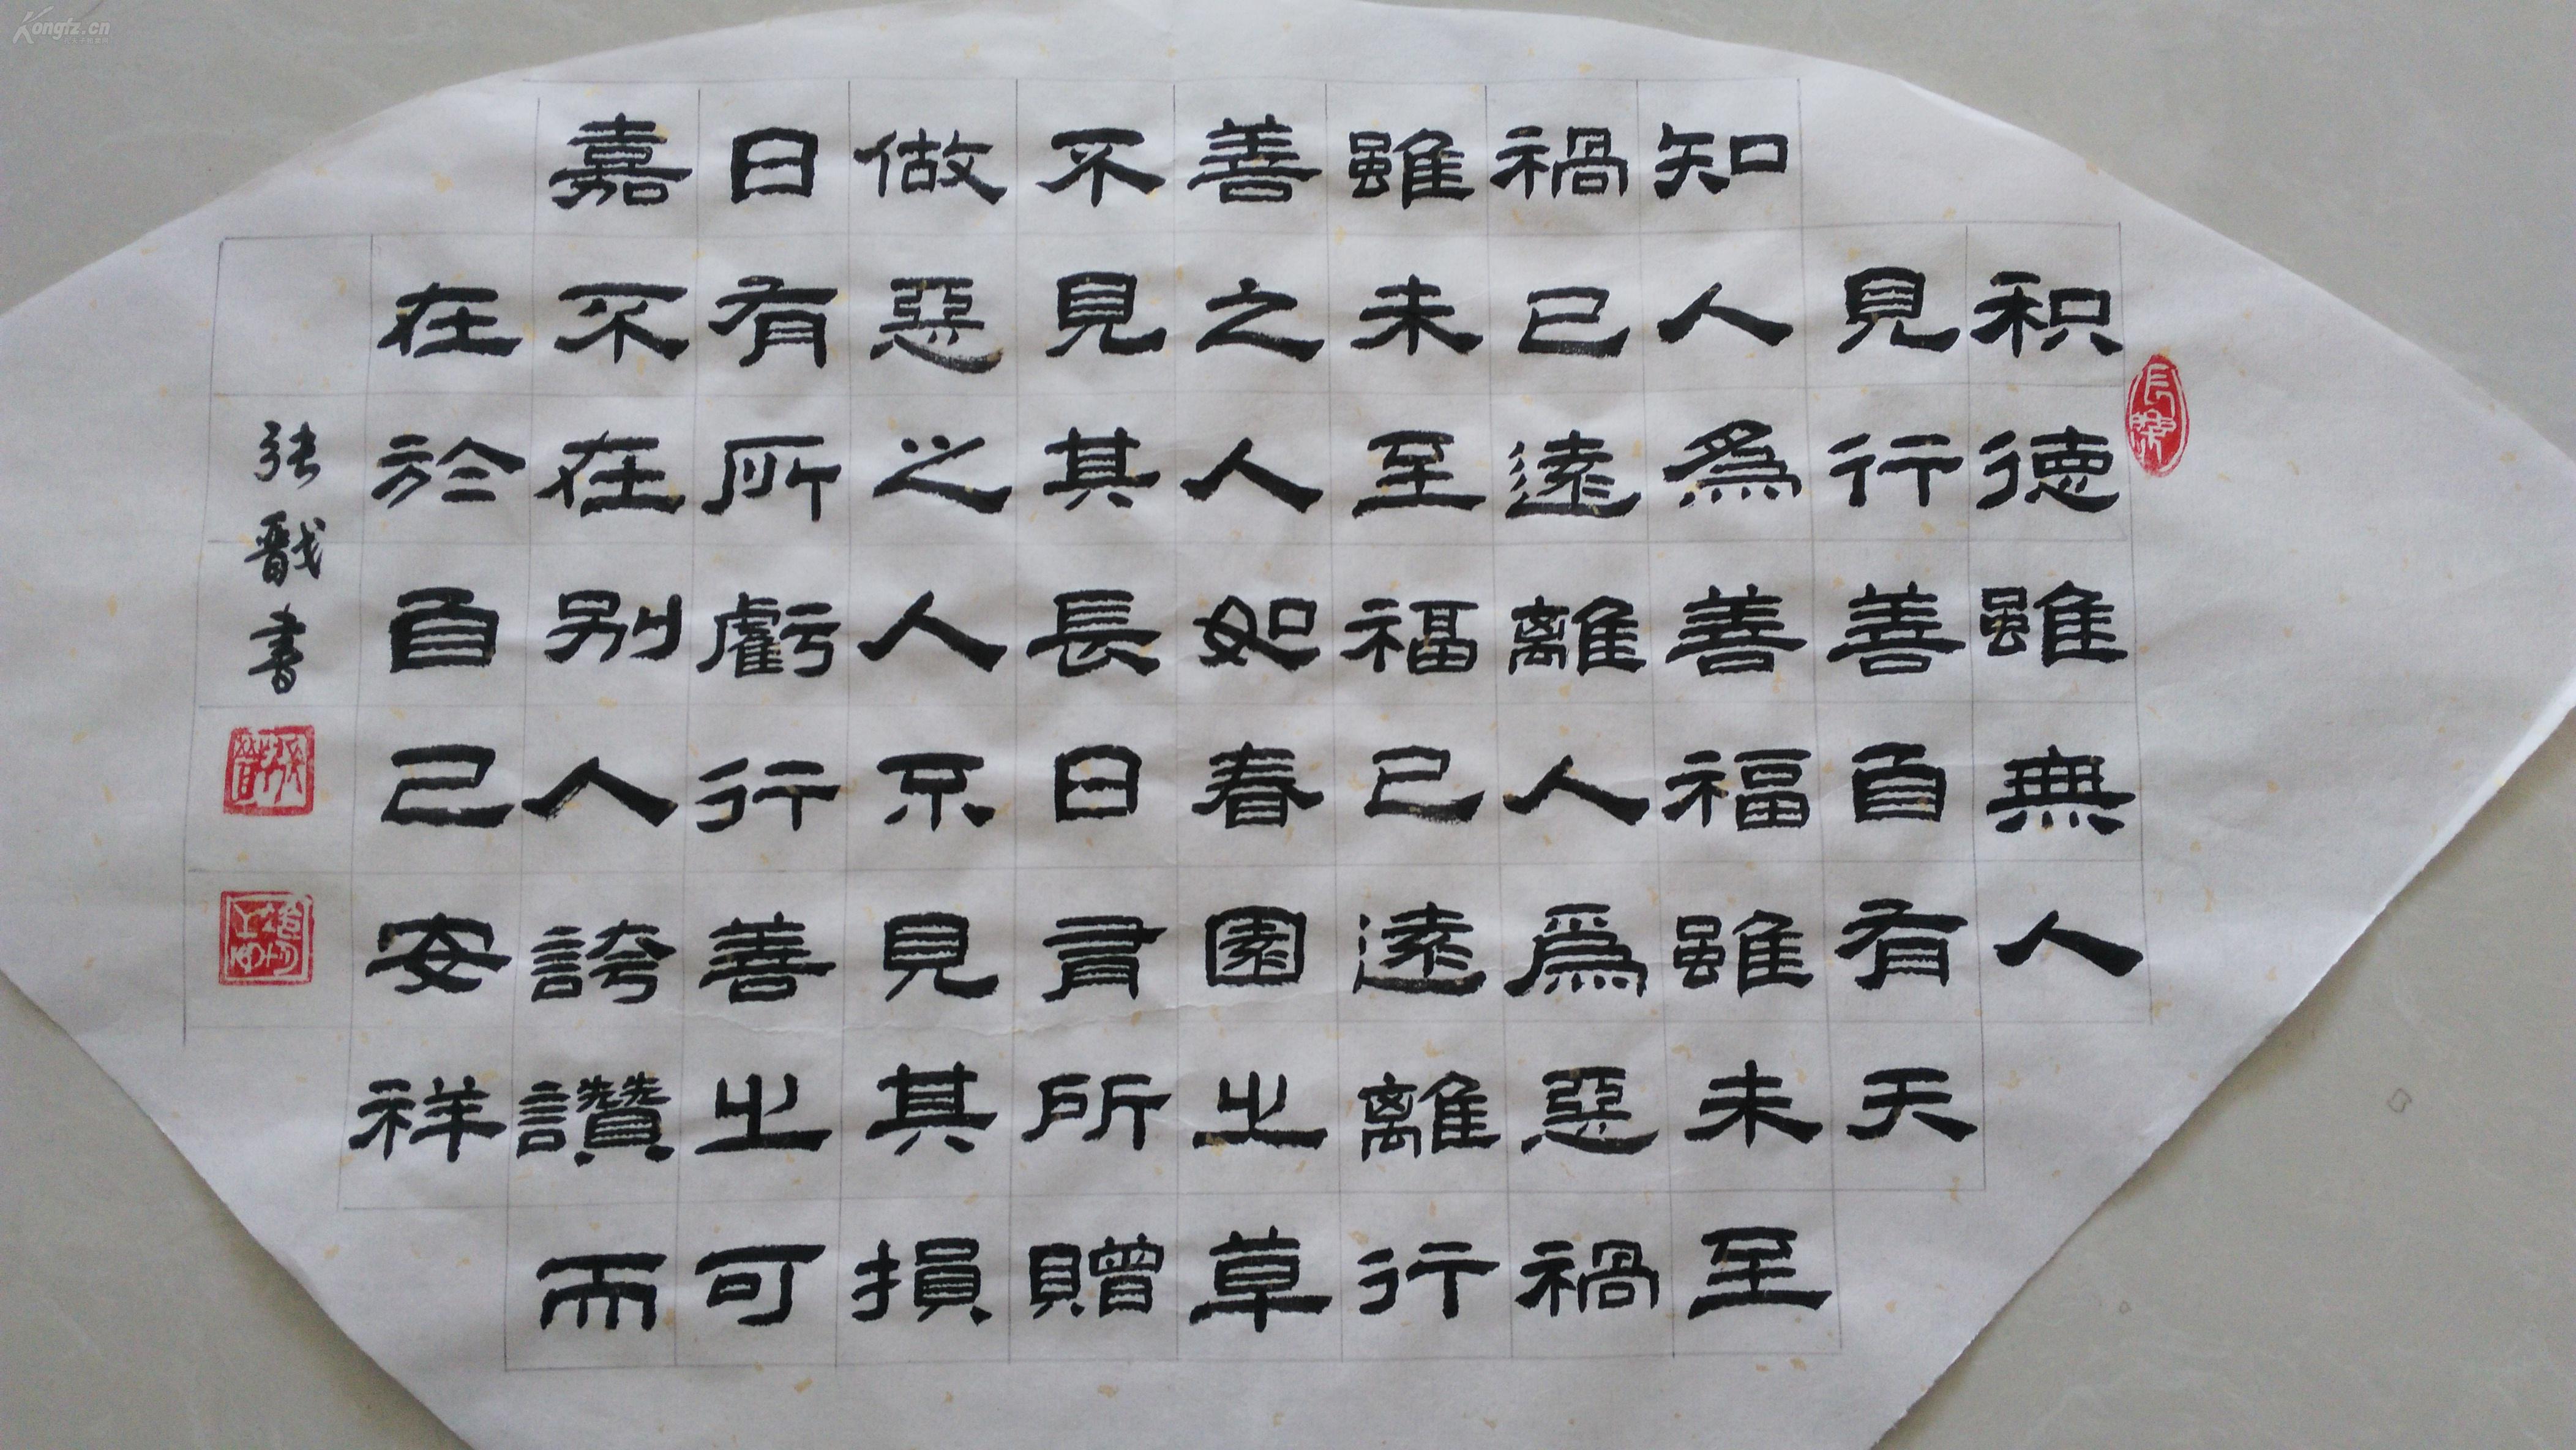 积德雖無人
見行善自有天
知人為善福雖未至
禍已遠離人爲惡禍
雖未至福已遠離行
善之人如春園之草
不見其長日有所贈
做惡之人不見其損
日有所虧行善之可
嘉不在别人誇讚而
在於自己安祥
张戩書
Kongfz.cn